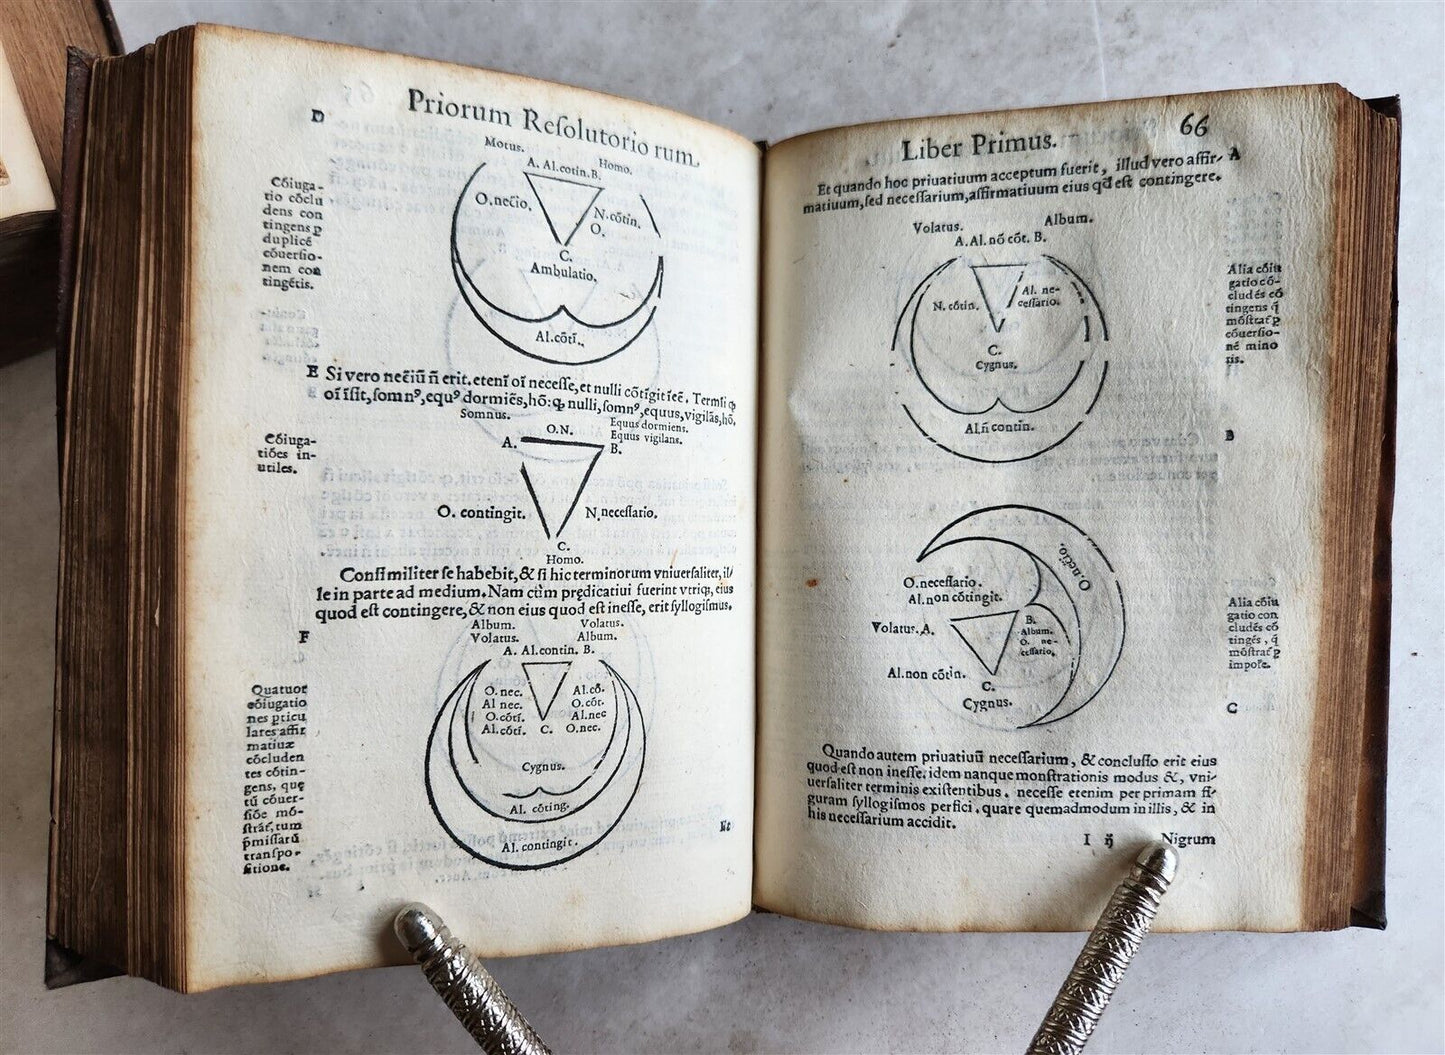 Priorum Resolutorio rum.
D
Motus.
A. Al.cotin. B.
Homo.
O.nec̄io.
N.cōtin.
O.
C.
Ambulatio.
Al.cōtī.
Cōiuga-
tio cōclu
dens con
tingens ꝑ
duplicē
cōuersio-
nem con
tingētis.
E Si vero nec̄iū n̄ erit. etenī oī necesse, et nulli cōtīgit
oī īsit, somnꝰ, equꝰ dormiēs, hō: nulli, somnꝰ, equus, vigilās, hō.
Somnus.
O.N.
Equus dormiens.
Equus vigilans.
A.
B.
O. contingit.
N. necessario.
C.
Homo.
Cōiuga-
tiōes in-
utiles.
Consimiliter se habebit, & si hic terminorum vniuersaliter, il-
le in parte ad medium. Nam cùm prędicatiui fuerint vtriqꝫ, eius
quod est contingere, & non eius quod est inesse, erit syllogismus.
F
Album.
Volatus.
Volatus.
Album.
A. Al.contin. B.
O. nec.
Al nec.
O.cōtī.
Al.cōtī.
Al.cō.
O.cōt.
Al.nec
O.nec.
C.
Cygnus.
Al. cōting.
Al. contingit.
Quatuor
cōiugatio
nes ꝑticu
lares affir
matiuæ
cōcluden
tes cōtin-
gens, quę
tū cōuer-
siōe mō-
strāt, tum
p̄missarū
transpo-
sitione.
Liber Primus.
66
Et quando hoc priuatiuum acceptum fuerit, illud vero affir- A
matiuum, sed necessarium, affirmatiuum eius qđ est contingere.
Volatus.
Album.
A. Al. nō cōt. B.
N. cōtin.
Al. ne-
cessario.
C.
Cygnus.
Al.n̄ contin.
Alia cōiu
gatio cō-
cludēs cō
tingens q̄
mōstrat ꝑ
cōuersio-
nē mino
ris.
B
O. nec̄io.
O. necessario.
Al. non cōtingit.
Volatus. A.
B.
Album.
O. ne-
cessario.
Al. non cōtin.
C.
Cygnus.
Alia cōiu
gatio con
cludēs cō
tingēs, q̄
mōstrat ꝑ
impose.
C
Quando autem priuatiuū necessarium, & conclusio erit eius
quod est non inesse. idem nanque monstrationis modus &, vni-
uersaliter terminis existentibus. necesse etenim per primam fi-
guram syllogismos perfici. quare quemadmodum in illis, & in
his necessarium accidit.
I ij
Nigrum